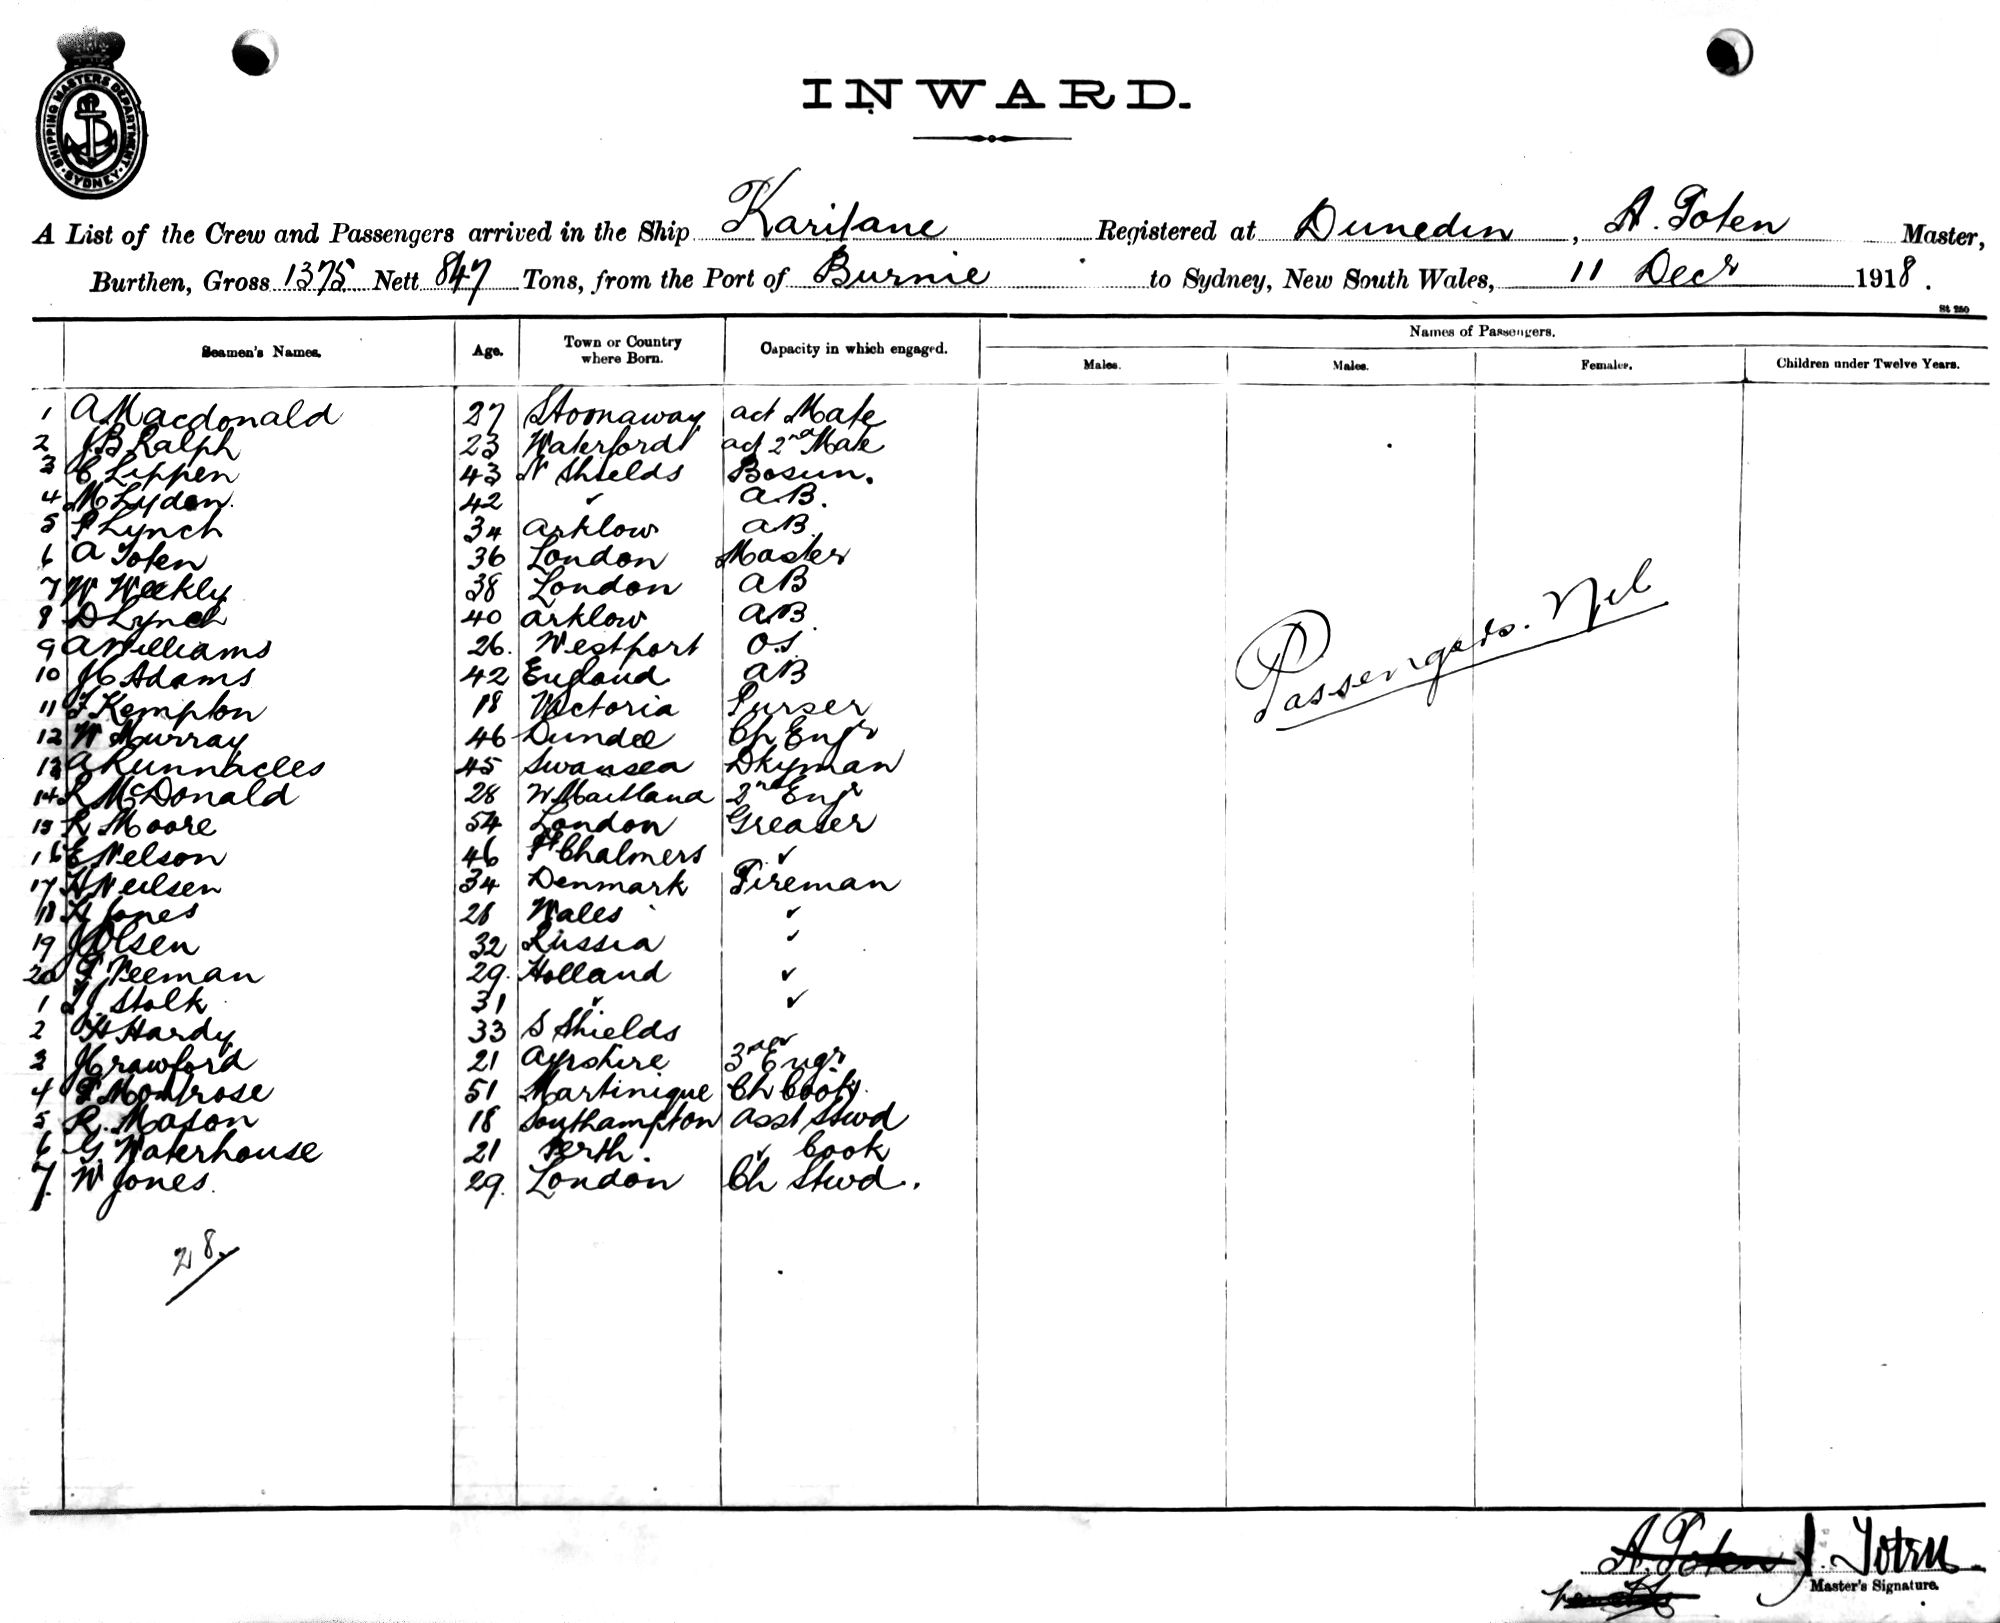 SHIPPING MASTERS DEPARTMENT SYDNEY
INWARD.
A List of the Crew and Passengers arrived in the Ship Karitane Registered at Dunedin, A. Toten Master,
Burthen, Gross 1375 Nett 847 Tons, from the Port of Burnie to Sydney, New South Wales, 11 Decr 1918.
St 250
Seamen's Names. Age. Town or Country where Born. Capacity in which engaged. Names of Passengers.
Males. Males. Females. Children under Twelve Years.
1 A Macdonald 27 Stornaway act Mate
2 J B Ralph 23 Waterford act 2nd Mate
3 C Lippen 43 N Shields Bosun.
4 M Lydon. 42 ✓ AB.
5 P Lynch 34 Arklow AB.
6 A Toten 36 London Master
7 W Weekly 38 London AB
8 D Lynch 40 Arklow AB.
9 A Williams 26. Westport O.S.
10 J C Adams 42 England AB
11 F Kempton 18 Victoria Purser
12 W Murray 46 Dundee Ch Engr
13 A Runnacles 45 Swansea Dkyman
14 R McDonald 28 W Maitland 2nd Engr
15 R Moore 54 London Greaser
16 E Nelson 46 Pt Chalmers ✓
17 H Neilsen 34 Denmark Fireman
18 H Jones 28 Wales ✓
19 J Olsen 32 Russia ✓
20 F Veeman 29. Holland ✓
1 J Stolk 31 ✓ ✓
2 H Hardy 33 S Shields ✓
3 J Crawford 21 Ayrshire 3rd Engr
4 F Montrose 51 Martinique Ch Cook.
5 R. Mason 18 Southampton Asst Stwd
6 G. Waterhouse 21 Perth. ✓ Cook
7. W Jones. 29. London Ch Stwd.
Passengers. Nil
28.
A. Toten J. Toten
Master's Signature.